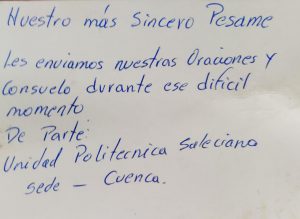 Nuestro más Sincero Pesame
Les enviamos nuestras Oraciones y
Consuelo durante ese dificil
momento
De Parte:
Unidad Politecnica Saleciana
sede - Cuenca.